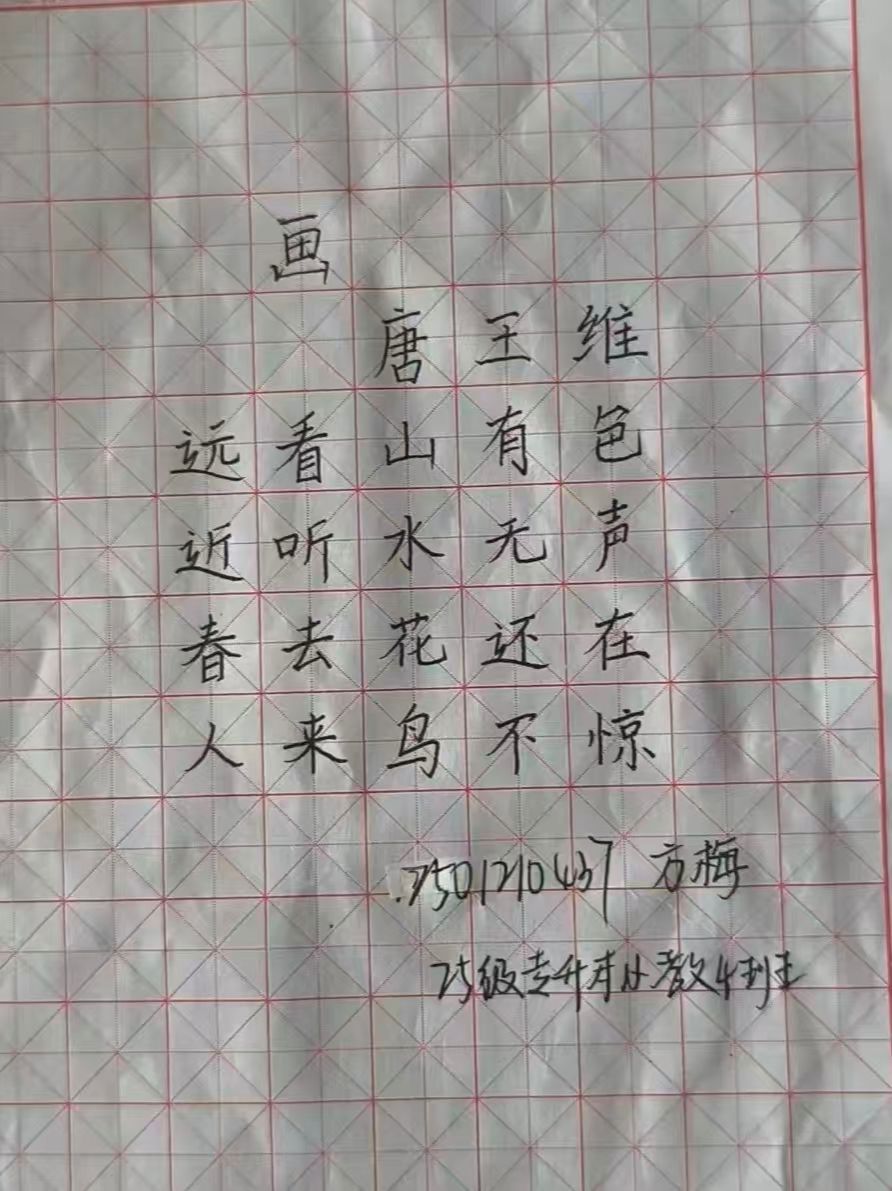 画
唐 王 维
远 看 山 有 色
近 听 水 无 声
春 去 花 还 在
人 来 鸟 不 惊
.2501210437 方梅
25级专升本小教4班